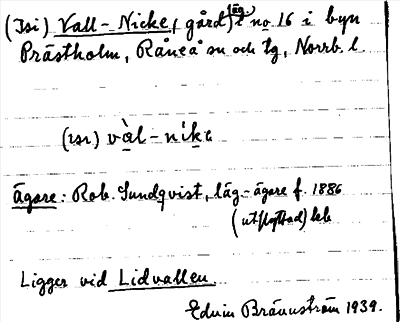 (Isi) Vall-Nicke, gård (läg.) no 16 i byn
Prästholm, Råneå sn och tg, Norrb. l.
(ɪsɪ) vàl-nikɛ
Ägare: Rob. Sundqvist, läg.-ägare f. 1886
(utflyttad)
Ligger vid Lidvallen.
Edvin Brännström 1939.